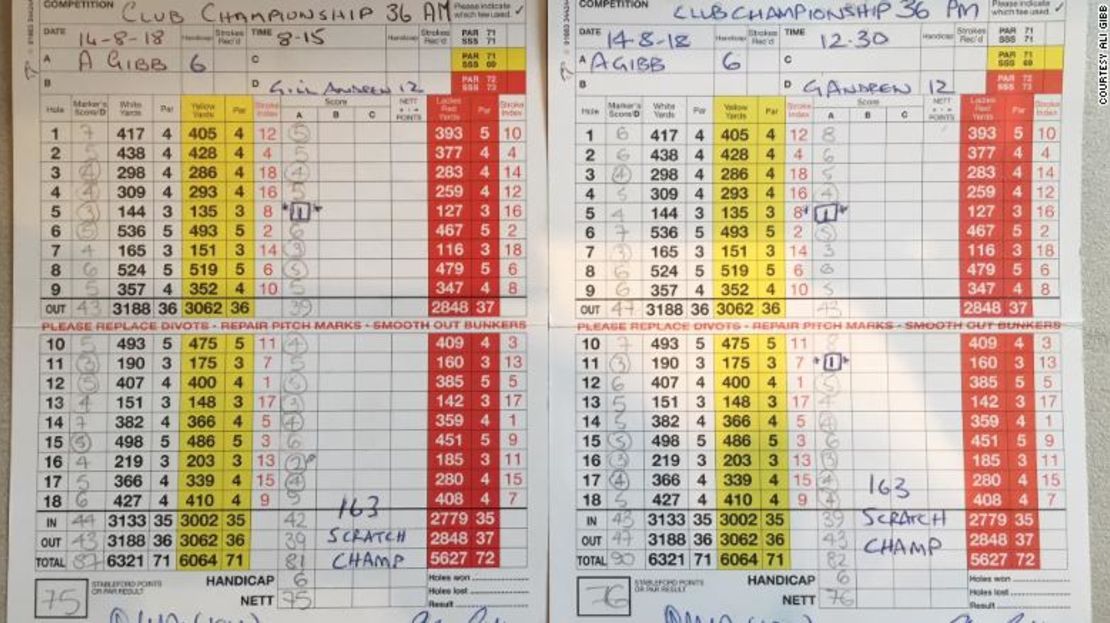 COMPETITION CLUB CHAMPIONSHIP 36 AM Please indicate which tee used ✓
DATE 14-8-18 Handicap Strokes Rec'd TIME 8-15 Handicap Strokes Rec'd PAR 71 SSS 71
A A GIBB 6 C PAR 71 SSS 69
B D GILL ANDREN 12 PAR 72 SSS 73
Hole Marker's Score/D White Yards Par Yellow Yards Par Stroke Index Score A B C NETT POINTS Ladies Red Yards Par Stroke Index
1 7 417 4 405 4 12 5 393 5 10
2 5 438 4 428 4 4 5 377 4 4
3 4 298 4 286 4 18 4 283 4 14
4 4 309 4 293 4 16 5 259 4 12
5 3 144 3 135 3 8 *1* 127 3 16
6 5 536 5 493 5 2 6 467 5 2
7 4 165 3 151 3 14 3 116 3 18
8 6 524 5 519 5 6 5 479 5 6
9 5 357 4 352 4 10 5 347 4 8
OUT 43 3188 36 3062 36 39 2848 37
PLEASE REPLACE DIVOTS - REPAIR PITCH MARKS - SMOOTH OUT BUNKERS
10 5 493 5 475 5 11 4 409 4 3
11 3 190 3 175 3 7 5 160 3 13
12 5 407 4 400 4 1 5 385 5 5
13 4 151 3 148 3 17 142 3 17
14 7 382 4 366 4 5 4 359 4 1
15 5 498 5 486 5 3 6 451 5 9
16 4 219 3 203 3 13 2 185 3 11
17 5 366 4 339 4 15 4 280 4 15
18 6 427 4 410 4 9 5 163 408 4 7
IN 44 3133 35 3002 35 42 SCRATCH 2779 35
OUT 43 3188 36 3062 36 39 CHAMP 2848 37
TOTAL 87 6321 71 6064 71 81 5627 72
75 STABLEFORD POINTS OR PAR RESULT HANDICAP 6 Holes won
NETT 75 Holes lost
Result
COMPETITION CLUB CHAMPIONSHIP 36 PM Please indicate which tee used ✓
DATE 14-8-18 Handicap Strokes Rec'd TIME 12.30 Handicap Strokes Rec'd PAR 71 SSS 71
A A GIBB 6 C PAR 71 SSS 69
B D G ANDREN 12 PAR 72 SSS 73
Hole Marker's Score/D White Yards Par Yellow Yards Par Stroke Index Score A B C NETT POINTS Ladies Red Yards Par Stroke Index
1 6 417 4 405 4 12 8 393 5 10
2 6 438 4 428 4 4 6 377 4 4
3 4 298 4 286 4 18 5 283 4 14
4 5 309 4 293 4 16 4 259 4 12
5 4 144 3 135 3 8 *1* 127 3 16
6 7 536 5 493 5 2 5 467 5 2
7 3 165 3 151 3 14 3 116 3 18
8 6 524 5 519 5 6 6 479 5 6
9 6 357 4 352 4 10 5 347 4 8
OUT 47 3188 36 3062 36 43 2848 37
PLEASE REPLACE DIVOTS - REPAIR PITCH MARKS - SMOOTH OUT BUNKERS
10 7 493 5 475 5 11 8 409 4 3
11 3 190 3 175 3 7 *1* 160 3 13
12 6 407 4 400 4 1 5 385 5 5
13 5 151 3 148 3 17 4 142 3 17
14 5 382 4 366 4 5 4 359 4 1
15 5 498 5 486 5 3 6 451 5 9
16 3 219 3 203 3 13 3 185 3 11
17 4 366 4 339 4 15 4 163 280 4 15
18 5 427 4 410 4 9 4 408 4 7
IN 43 3133 35 3002 35 39 SCRATCH 2779 35
OUT 47 3188 36 3062 36 43 CHAMP 2848 37
TOTAL 90 6321 71 6064 71 82 5627 72
76 STABLEFORD POINTS OR PAR RESULT HANDICAP 6 Holes won
NETT 76 Holes lost
Result
COURTESY ALI GIBB